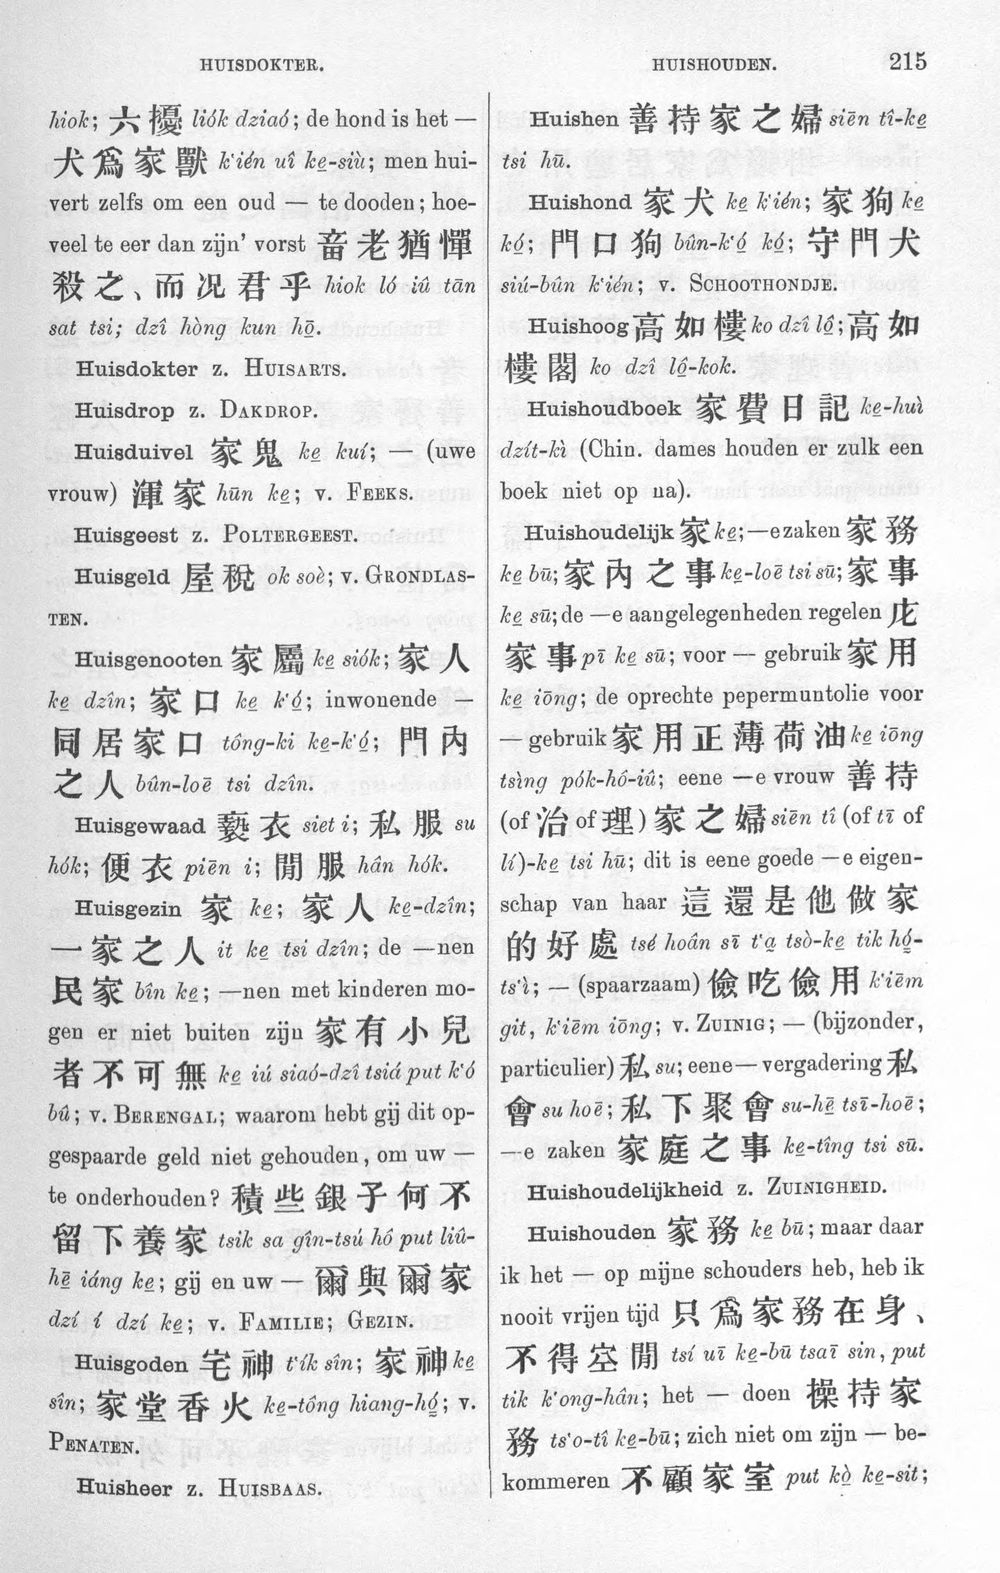 HUISDOKTER.
HUISHOUDEN.
215
hiok; 六擾 liók dziaó; de hond is het —
犬爲家獸 k‘ién uî ke̱-siù; men hui-
vert zelfs om een oud — te dooden; hoe-
veel te eer dan zijn’ vorst 畜老猶憚
殺之、而况君乎 hiok ló iû tān
sat tsi; dzî hòng kun hō͘.
Huisdokter z. HUISARTS.
Huisdrop z. DAKDROP.
Huisduivel 家鬼 ke̱ kuí; — (uwe
vrouw)渾家 hūn ke̱; v. FEEKS.
Huisgeest z. POLTERGEEST.
Huisgeld 屋稅 ok soè; v. GRONDLAS-
TEN.
Huisgenooten 家屬 ke̱ siók; 家人
ke̱ dzîn; 家口 ke̱ k‘ó̱; inwonende —
同居家口 tông-ki ke̱-k‘ó̱; 門內
之人 bûn-loē tsi dzîn.
Huisgewaad 褻衣 siet i; 私服 su
hók; 便衣 piēn i; 閒服 hân hók.
Huisgezin 家 ke̱; 家人 ke̱-dzîn;
一家之人 it ke̱ tsi dzîn; de —nen
民家 bîn ke̱; —nen met kinderen mo-
gen er niet buiten zijn 家有小兒
者不可無 ke̱ iú siaó-dzî tsiá put k‘ó
bû; v. BERENGAL; waarom hebt gij dit op-
gespaarde geld niet gehouden, om uw —
te onderhouden? 積些銀子何不
留下養家 tsik sa gîn-tsú hô put liû-
hē̱ iáng ke̱; gij en uw — 爾與爾家
dzí í dzí ke̱; v. FAMILIE; GEZIN.
Huisgoden 宅神 t‘ík sîn; 家神 ke̱
sîn; 家堂香火 ke̱-tông hiang-hó̱; v.
PENATEN.
Huisheer z. HUISBAAS.
Huishen 善持家之婦 siēn tî-ke̱
tsi hū.
Huishond 家犬 ke̱ k‘ién; 家狗 ke̱
kó̱; 門口狗 bûn-k‘ó̱ kó̱; 守門犬
siú-bûn k‘ién; v. SCHOOTHONDJE.
Huishoog 高如樓 ko dzî lô̱; 高如
樓閣 ko dzî lô̱-kok.
Huishoudboek 家費日記 ke̱-huì
dzít-kì (Chin. dames houden er zulk een
boek niet op na).
Huishoudelijk 家 ke̱; —e zaken 家務
ke̱ bū; 家內之事 ke̱-loē tsi sū; 家事
ke̱ sū; de —e aangelegenheden regelen 庀
家事 pī ke̱ sū; voor — gebruik 家用
ke̱ iōng; de oprechte pepermuntolie voor
— gebruik 家用正薄荷油 ke̱ iōng
tsìng pók-hô-iû; eene —e vrouw 善持
(of 治 of 理) 家之婦 siēn tî (of tī of
lí)-ke̱ tsi hū; dit is eene goede —e eigen-
schap van haar 這還是他做家
的好處 tsé hoân sī t‘a̱ tsò-ke̱ tik hó̱-
ts‘ì; — (spaarzaam) 儉吃儉用 k‘iēm
git, k‘iēm iōng; v. ZUINIG; — (bijzonder,
particulier) 私 su; eene — vergadering 私
會 su hoē; 私下聚會 su-hē̱ tsī-hoē;
—e zaken 家庭之事 ke̱-tîng tsi sū.
Huishoudelijkheid z. ZUINIGHEID.
Huishouden 家務 ke̱ bū; maar daar
ik het — op mijne schouders heb, heb ik
nooit vrijen tijd 只爲家務在身、
不得空閒 tsí uī ke̱-bū tsaī sin, put
tik k‘ong-hân; het — doen 操持家
務 ts‘o-tî ke̱-bū; zich niet om zijn — be-
kommeren 不顧家室 put kò̱ ke̱-sit;